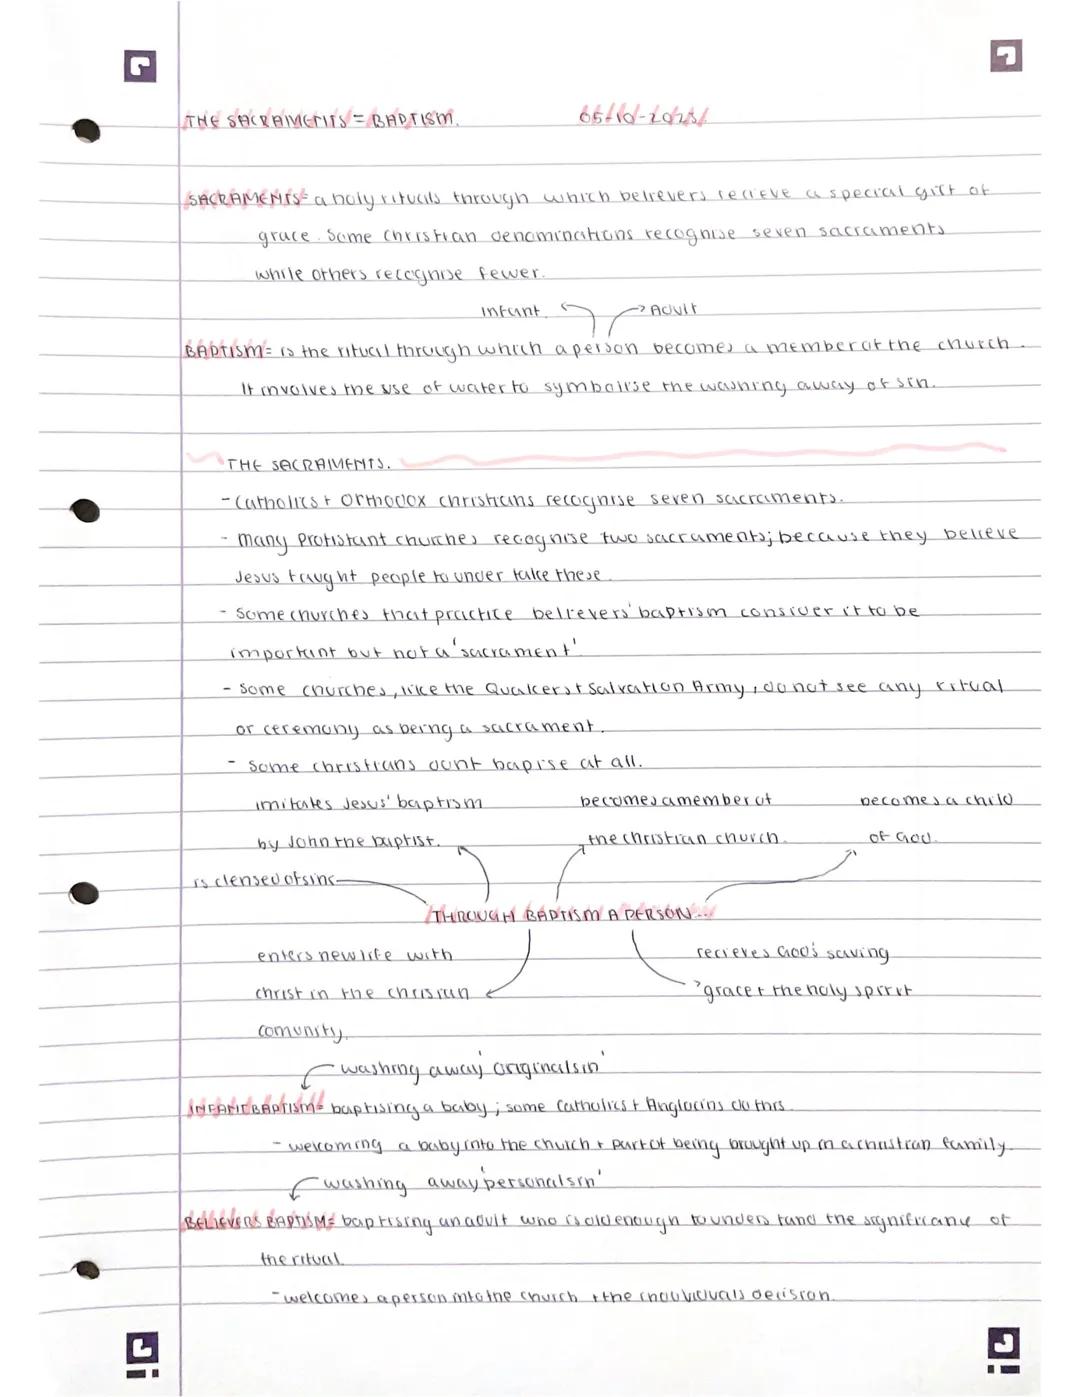 THE SACRAMENTS = BAPTISM. 05-10-2023
SACRAMENTS= a holy rituals through which believers recieve a special gift of
grace. Some Christian denominations recognise seven sacraments
while others recognise fewer.
Infant. Adult
BAPTISM= is the ritual through which a person becomes a member of the church.
It involves the use of water to symbolise the washing away of sin.
THE SACRAMENTS.
- Catholics + Orthodox christians recognise seven sacraments.
- Many Protistant churches recognise two sacraments; because they believe
Jesus taught people to under take these.
- Some churches that practice believers' baptism consider it to be
important but not a 'sacrament'.
- Some churches, like the Quakers + Salvation Army, do not see any ritual
or ceremony as being a sacrament.
- Some christians dont bapise at all.
imitates Jesus' baptism becomes a member of becomes a child
by John the baptist. the christian church. of God.
is clensed of sins
THROUGH BAPTISM A PERSON...
enters new life with recieves God's saving
christ in the chrisian grace + the holy spirit
comunity.
washing away 'original sin'
INFANT BAPTISM= baptising a baby; some Catholics + Anglacins do this.
- welcoming a baby into the church + part of being brought up in a christian family.
washing away 'personal sin'
BELIEVERS BAPTISM= baptising an adult who is old enough to understand the significance of
the ritual.
- welcomes a person into the church + the individuals decision.